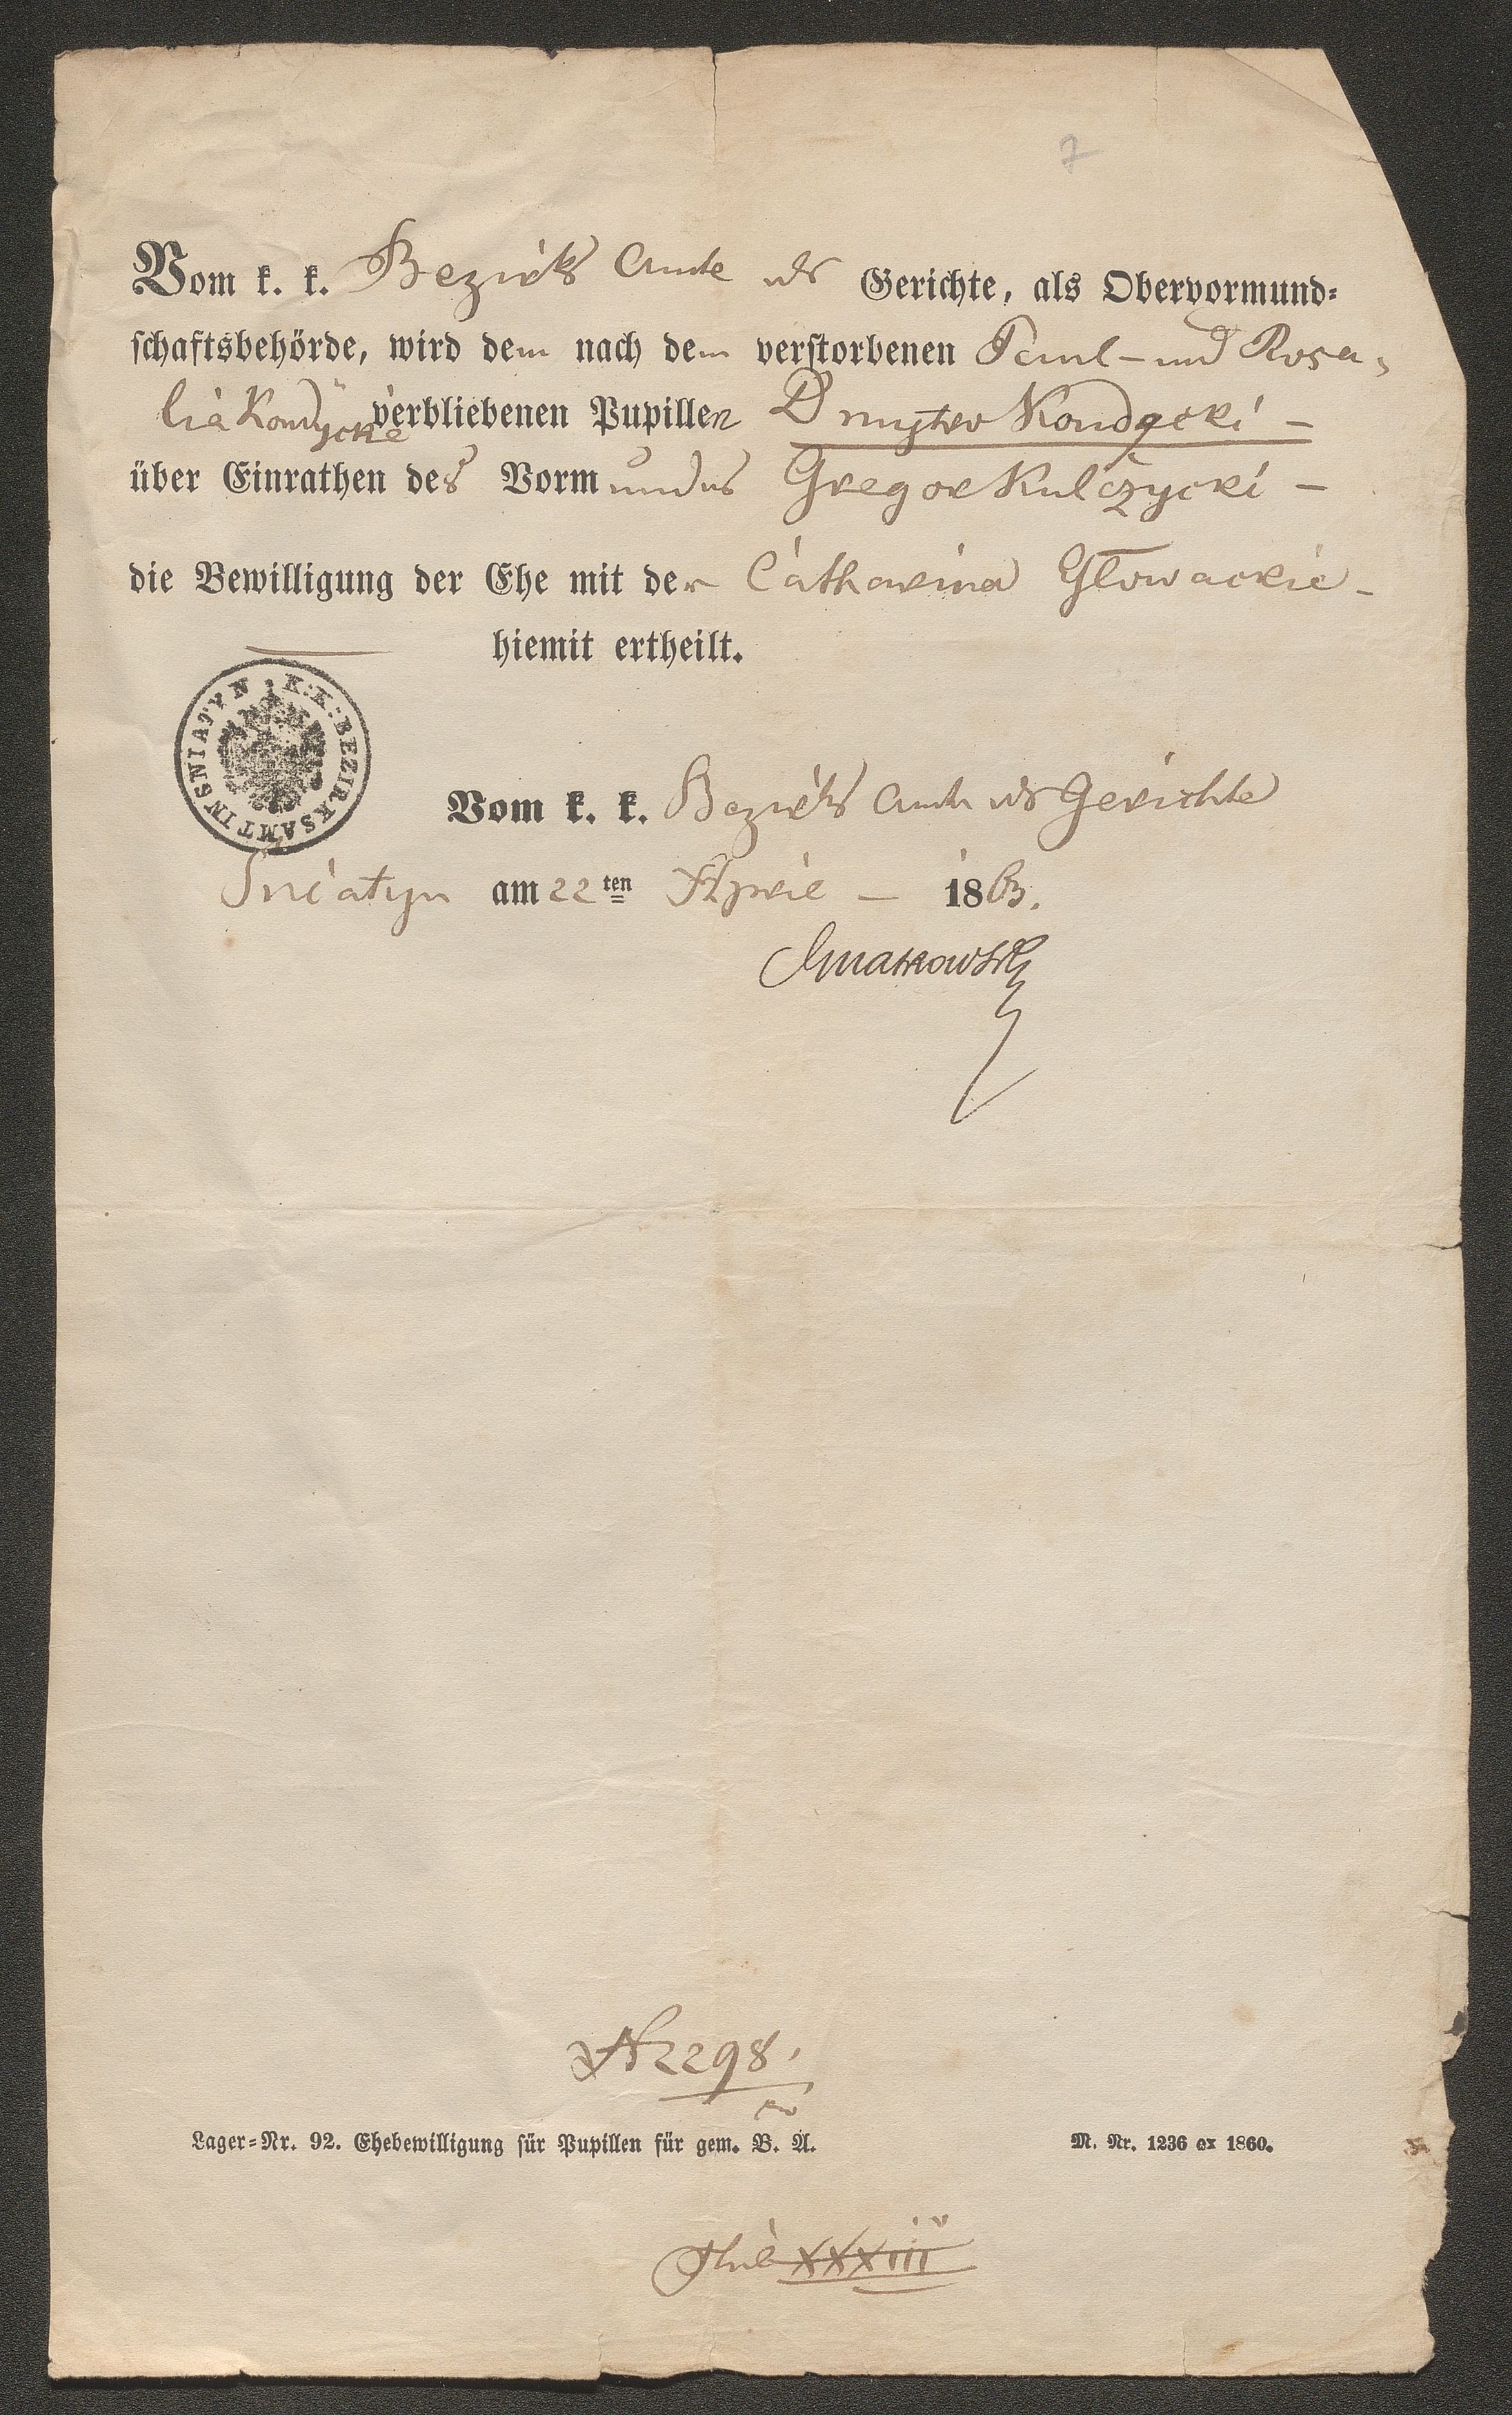 7
Vom k. k. Bezirks Amte als Gerichte, als Obervormund-
schaftsbehörde, wird dem nach dem verstorbenen Paul - und Rosa-
lia Kondycke verbliebenen Pupillen Dmytro Kondycki -
über Einrathen des Vormundes Gregor Kulczycki -
die Bewilligung der Ehe mit der Catharina Głowackie -
hiemit ertheilt.
K: K: BEZIRKSAMT IN SNIATYN
Vom k. k. Bezirks Amte als Gerichte
Sniatyn am 22ten April - 1863.
N 2298.
Lager-Nr. 92. Ehebewilligung für Pupillen für gem. B. A.
M. Nr. 1236 ex 1860.
XXXIII